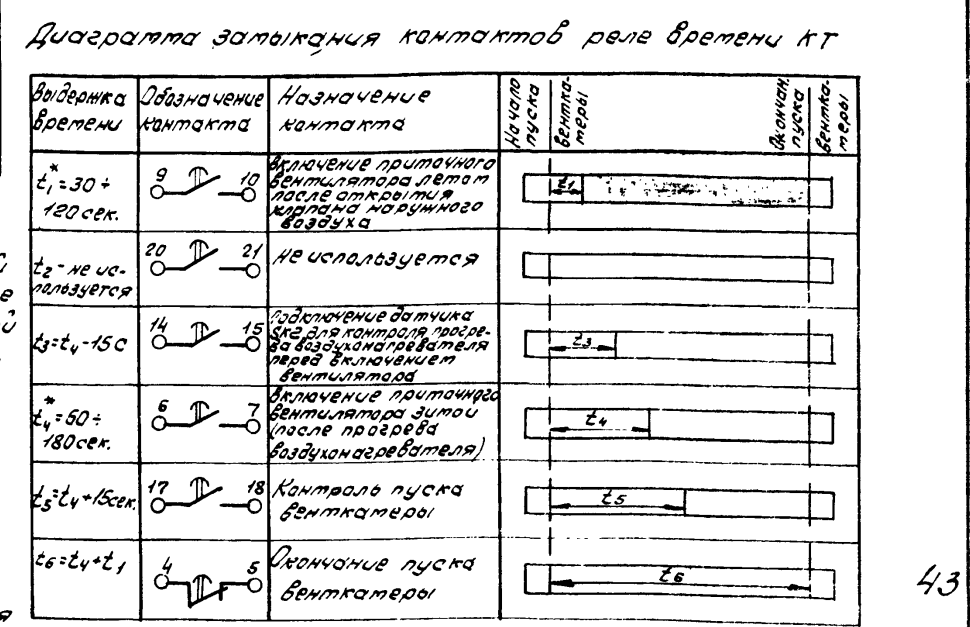 Диаграмма замыкания контактов реле времени КТ
Выдержка
времени
Обозначение
контакта
Назначение
контакта
Начало
пуска
вентка-
меры
Окончан.
пуска
вентка-
меры
t₁* = 30 ÷
120 сек.
9 10
включение приточного
вентилятора летом
после открытия
клапана наружного
воздуха
t₁
t₂ - не ис-
пользуется
20 21
не используется
t₃ = t₄ - 15 с
14 15
подключение датчика
SK2 для контроля прогре-
ва воздухонагревателя
перед включением
вентилятора
t₃
t₄* = 60 ÷
180 сек.
6 7
включение приточного
вентилятора зимой
(после прогрева
воздухонагревателя)
t₄
t₅ = t₄ + 15 сек.
17 18
Контроль пуска
венткамеры
t₅
t₆ = t₄ + t₁
4 5
Окончание пуска
венткамеры
t₆
43